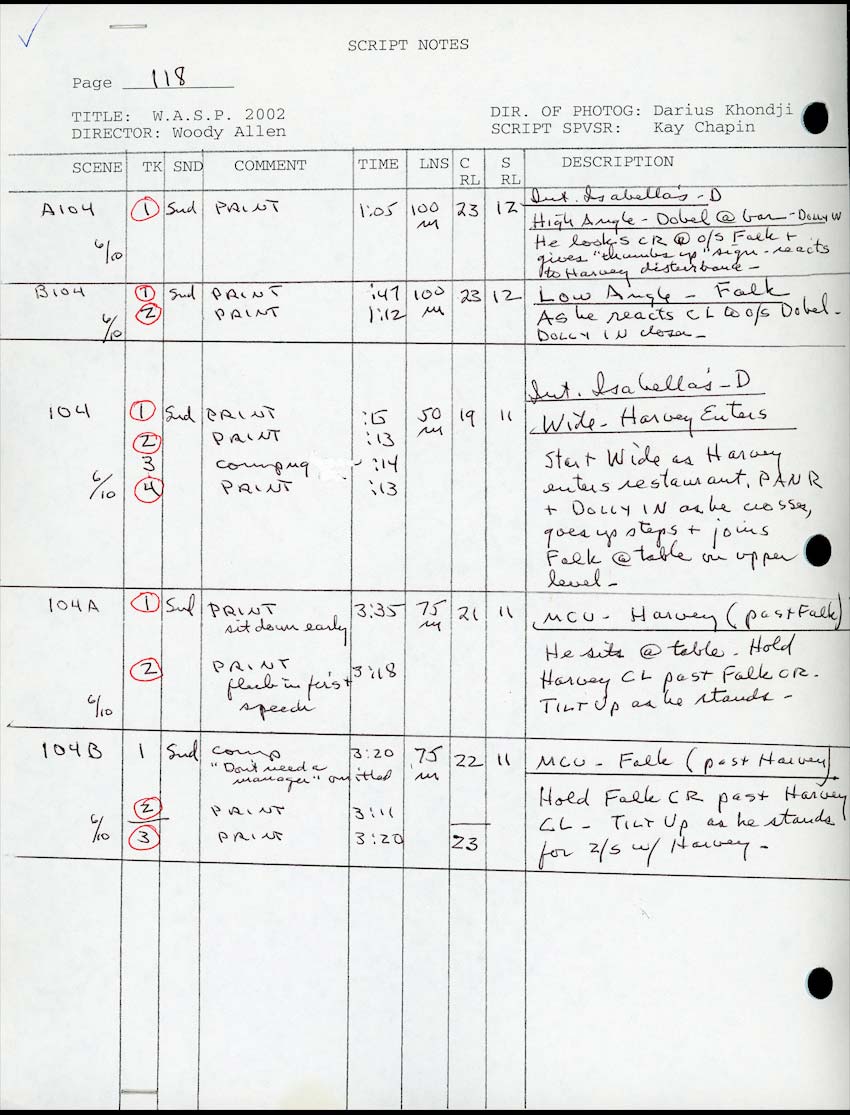 SCRIPT NOTES
Page 118
TITLE: W.A.S.P. 2002 DIR. OF PHOTOG: Darius Khondji
DIRECTOR: Woody Allen SCRIPT SPVSR: Kay Chapin
SCENE TK SND COMMENT TIME LNS C RL S RL DESCRIPTION
A104 1 Snd PRINT 1:05 100 m 23 12 Int. Isabella's - D
High Angle - Dobel @ bar - Dolly W
He looks CR @ o/s Falk +
6/10 gives "thumbs up" sign - reacts
to Harvey disturbance -
B104 1 Snd PRINT :47 100 m 23 12 Low Angle - Falk
2 PRINT 1:12 As he reacts CL to o/s Dobel -
6/10 DOLLY IN closer -
Int. Isabella's - D
104 1 Snd PRINT :15 50 m 19 11 Wide - Harvey Enters
2 PRINT :13
3 comp :14 Start Wide as Harvey
6/10 4 PRINT :13 enters restaurant, PAN R
+ DOLLY IN as he crosses,
goes up steps + joins
Falk @ table on upper
level -
104A 1 Snd PRINT 3:35 75 m 21 11 MCU - Harvey (past Falk)
sit down early
He sits @ table - Hold
2 PRINT 3:18 Harvey CL past Falk CR -
flub in first TILT Up as he stands -
6/10 speech
104B 1 Snd comp 3:20 75 m 22 11 MCU - Falk (past Harvey)
"Don't need a
manager" omitted
Hold Falk CR past Harvey
2 PRINT 3:11 CL - TILT Up as he stands
6/10 3 PRINT 3:20 23 for 2/S w/ Harvey -